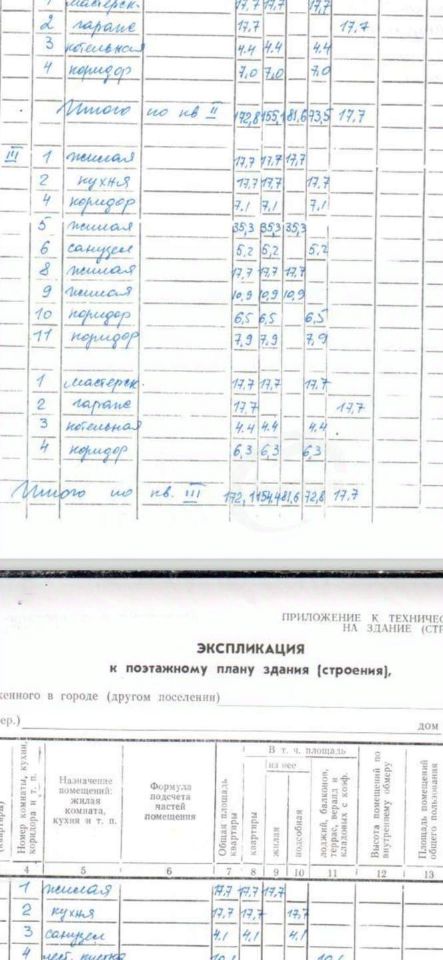 1 мастерск. 17,7 17,7 17,7
2 гараж 17,7 17,7
3 котельная 4.4 4.4 4.4
4 коридор 7,0 7,0 7,0
Итого по кв II 172,8 155,1 81,6 73,5 17,7
III 1 жилая 17,7 17,7 17,7
2 кухня 17,7 17,7 17,7
4 коридор 7,1 7,1 7,1
5 жилая 35,3 35,3 35,3
6 санузел 5,2 5,2 5,2
8 жилая 17,7 17,7 17,7
9 жилая 10,9 10,9 10,9
10 коридор 6,5 6,5 6,5
11 коридор 7,9 7,9 7,9
1 мастерск. 17,7 17,7 17,7
2 гараж 17,7 17,7
3 котельная 4.4 4.4 4.4
4 коридор 6,3 6,3 6,3
Итого по кв. III 172,1 154,4 81,6 72,8 17.7
ПРИЛОЖЕНИЕ К ТЕХНИЧЕС
НА ЗДАНИЕ (СТР
ЭКСПЛИКАЦИЯ
к поэтажному плану здания (строения),
женного в городе (другом поселении)
ер.) дом
(квартиры)
Номер комнаты, кухни, коридора и т. п.
Назначение помещений: жилая комната, кухня и т. п.
Формула подсчета частей помещения
Общая площадь квартиры
В т. ч. площадь
квартиры
из нее
жилая
подсобная
лоджий, балконов, террас, веранд и кладовых с коэф.
Высота помещений по внутреннему обмеру
Площадь помещений общего пользования
4 5 6 7 8 9 10 11 12 13
1 жилая 17,7 17,7 17,7
2 кухня 17,7 17,7 17,7
3 санузел 4,1 4,1 4,1
4